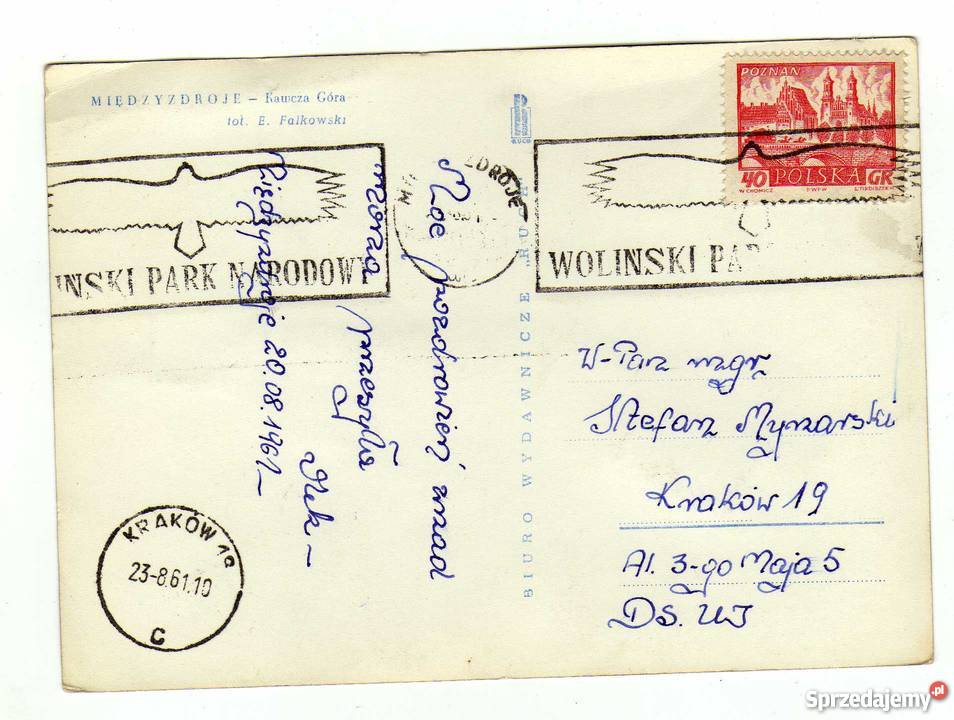 MIĘDZYZDROJE – Kawcza Góra
fot. E. Falkowski
RUCH
POZNAŃ
40 POLSKA GR
W. CHOMICZ P.W.P.W.
ZDROJE
INSKI PARK NARODOWY
WOLINSKI PA
W
Moc pozdrowień znad
morza
przesyła
Międzyzdroje 20.08.1961–
BIURO WYDAWNICZE „RUCH"
W-Pan mgr
Stefan Mynarski
Kraków 19
Al. 3-go Maja 5
DS. UJ
KRAKÓW 19
23-8.61.10
C
Sprzedajemy.pl